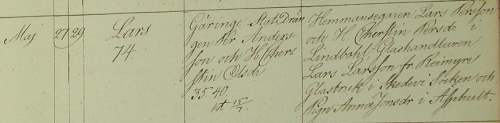 Maj 27 29 Lars
74.
Gäringe Måls Drän
gen Pär Anders
son och H Chers
tin Olsdr
35. 40.
15/7.
Hemmansegaren Lars Persson
och H. Cherstin Persdr i
Lindbohl Glashandlaren
Lars Larsson fr Reimyre
Glasbruk i Skedevi Socken och
Pigan Anna Jonsdr i Asphult.